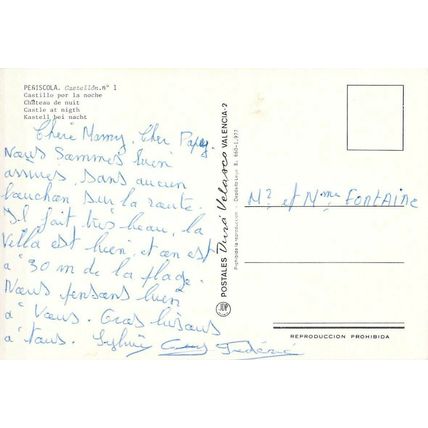 PEÑISCOLA. Castellón. nº 1
Castillo por la noche
Château de nuit
Castle at nigth
Kastell bei nacht
Chère Mamy, Cher Papy.
Nous Sommes bien
arrivés, sans aucun
bouchon sur la route.
Il fait très beau, la
Villa est bien, et on est
à 30 m de la plage.
Nous pensons bien
à Vous. Gros bisous
à tous. Sylvie Frédéric
POSTALES Durá Velasco VALENCIA-2
Prohibida la reproducción
Depósito Legal B.
Mr et Mme FONTAINE
REPRODUCCION PROHIBIDA